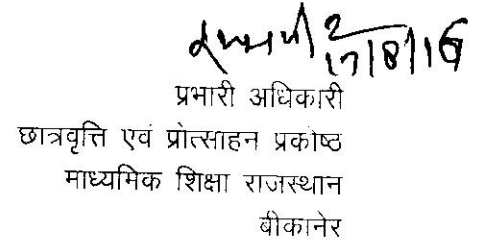 17/8/16
प्रभारी अधिकारी
छात्रवृत्ति एवं प्रोत्साहन प्रकोष्ठ
माध्यमिक शिक्षा राजस्थान
बीकानेर